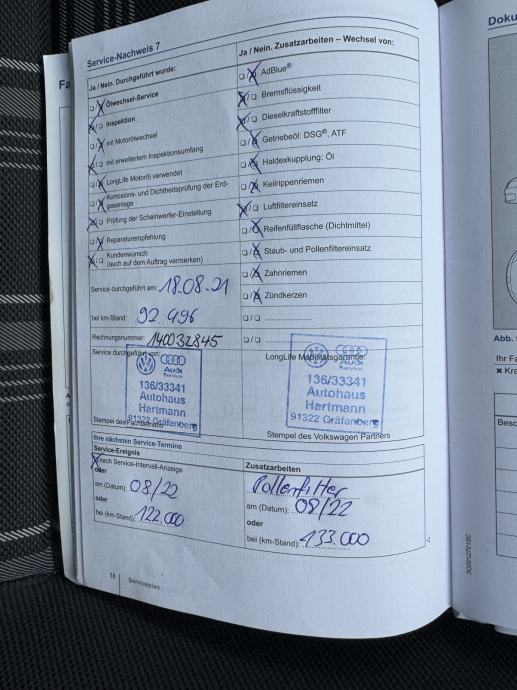 Doku
Service-Nachweis 7
Ja / Nein. Durchgeführt wurde:
Ölwechsel-Service
Inspektion
mit Motorölwechsel
mit erweitertem Inspektionsumfang
LongLife Motoröl verwendet
Korrosions- und Dichtheitsprüfung der Erd-
gasanlage
Prüfung der Scheinwerfer-Einstellung
Reparaturempfehlung
Kundenwunsch
(auch auf dem Auftrag vermerken)
Service durchgeführt am: 18.08.21
bei km-Stand: 92 496
Rechnungsnummer: 140032845
Service durchgeführt von:
Audi
Service
136/33341
Autohaus
Hartmann
91322 Gräfenberg
Stempel des Fachbetriebs
Ja / Nein. Zusatzarbeiten – Wechsel von:
AdBlue®
Bremsflüssigkeit
Dieselkraftstofffilter
Getriebeöl: DSG®, ATF
Haldexkupplung: Öl
Keilrippenriemen
Luftfiltereinsatz
Reifenfüllflasche (Dichtmittel)
Staub- und Pollenfiltereinsatz
Zahnriemen
Zündkerzen
LongLife Mobilitätsgarantie:
Audi
Service
136/33341
Autohaus
Hartmann
91322 Gräfenberg
Stempel des Volkswagen Partners
Ihre nächsten Service-Termine
Service-Ereignis
nach Service-Intervall-Anzeige
oder
am (Datum): 08/22
oder
bei (km-Stand): 122.000
Zusatzarbeiten
Pollenfilter
am (Datum): 08/22
oder
bei (km-Stand): 133.000
18 Serviceplan
3G0012701SC
Abb.
Ihr Fa
× Kra
Besc